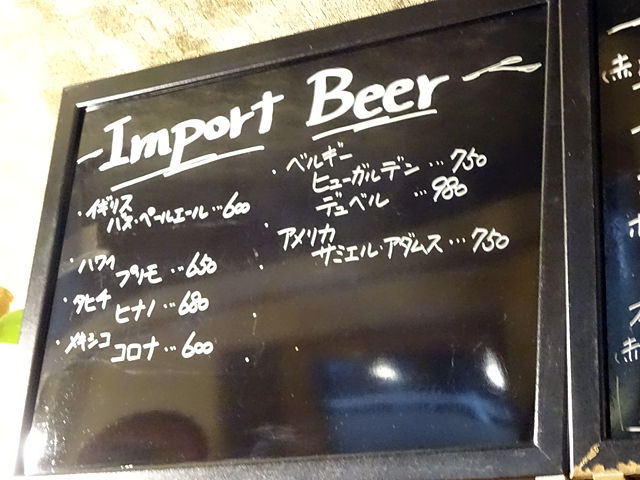 Import Beer
・イギリス
バス・ペールエール…600
・ハワイ
プリモ…650
・タヒチ
ヒナノ…680
・メキシコ
コロナ…600
・ベルギー
ヒューガルデン…750
デュベル…980
・アメリカ
サミエル・アダムス…750
(赤
(赤